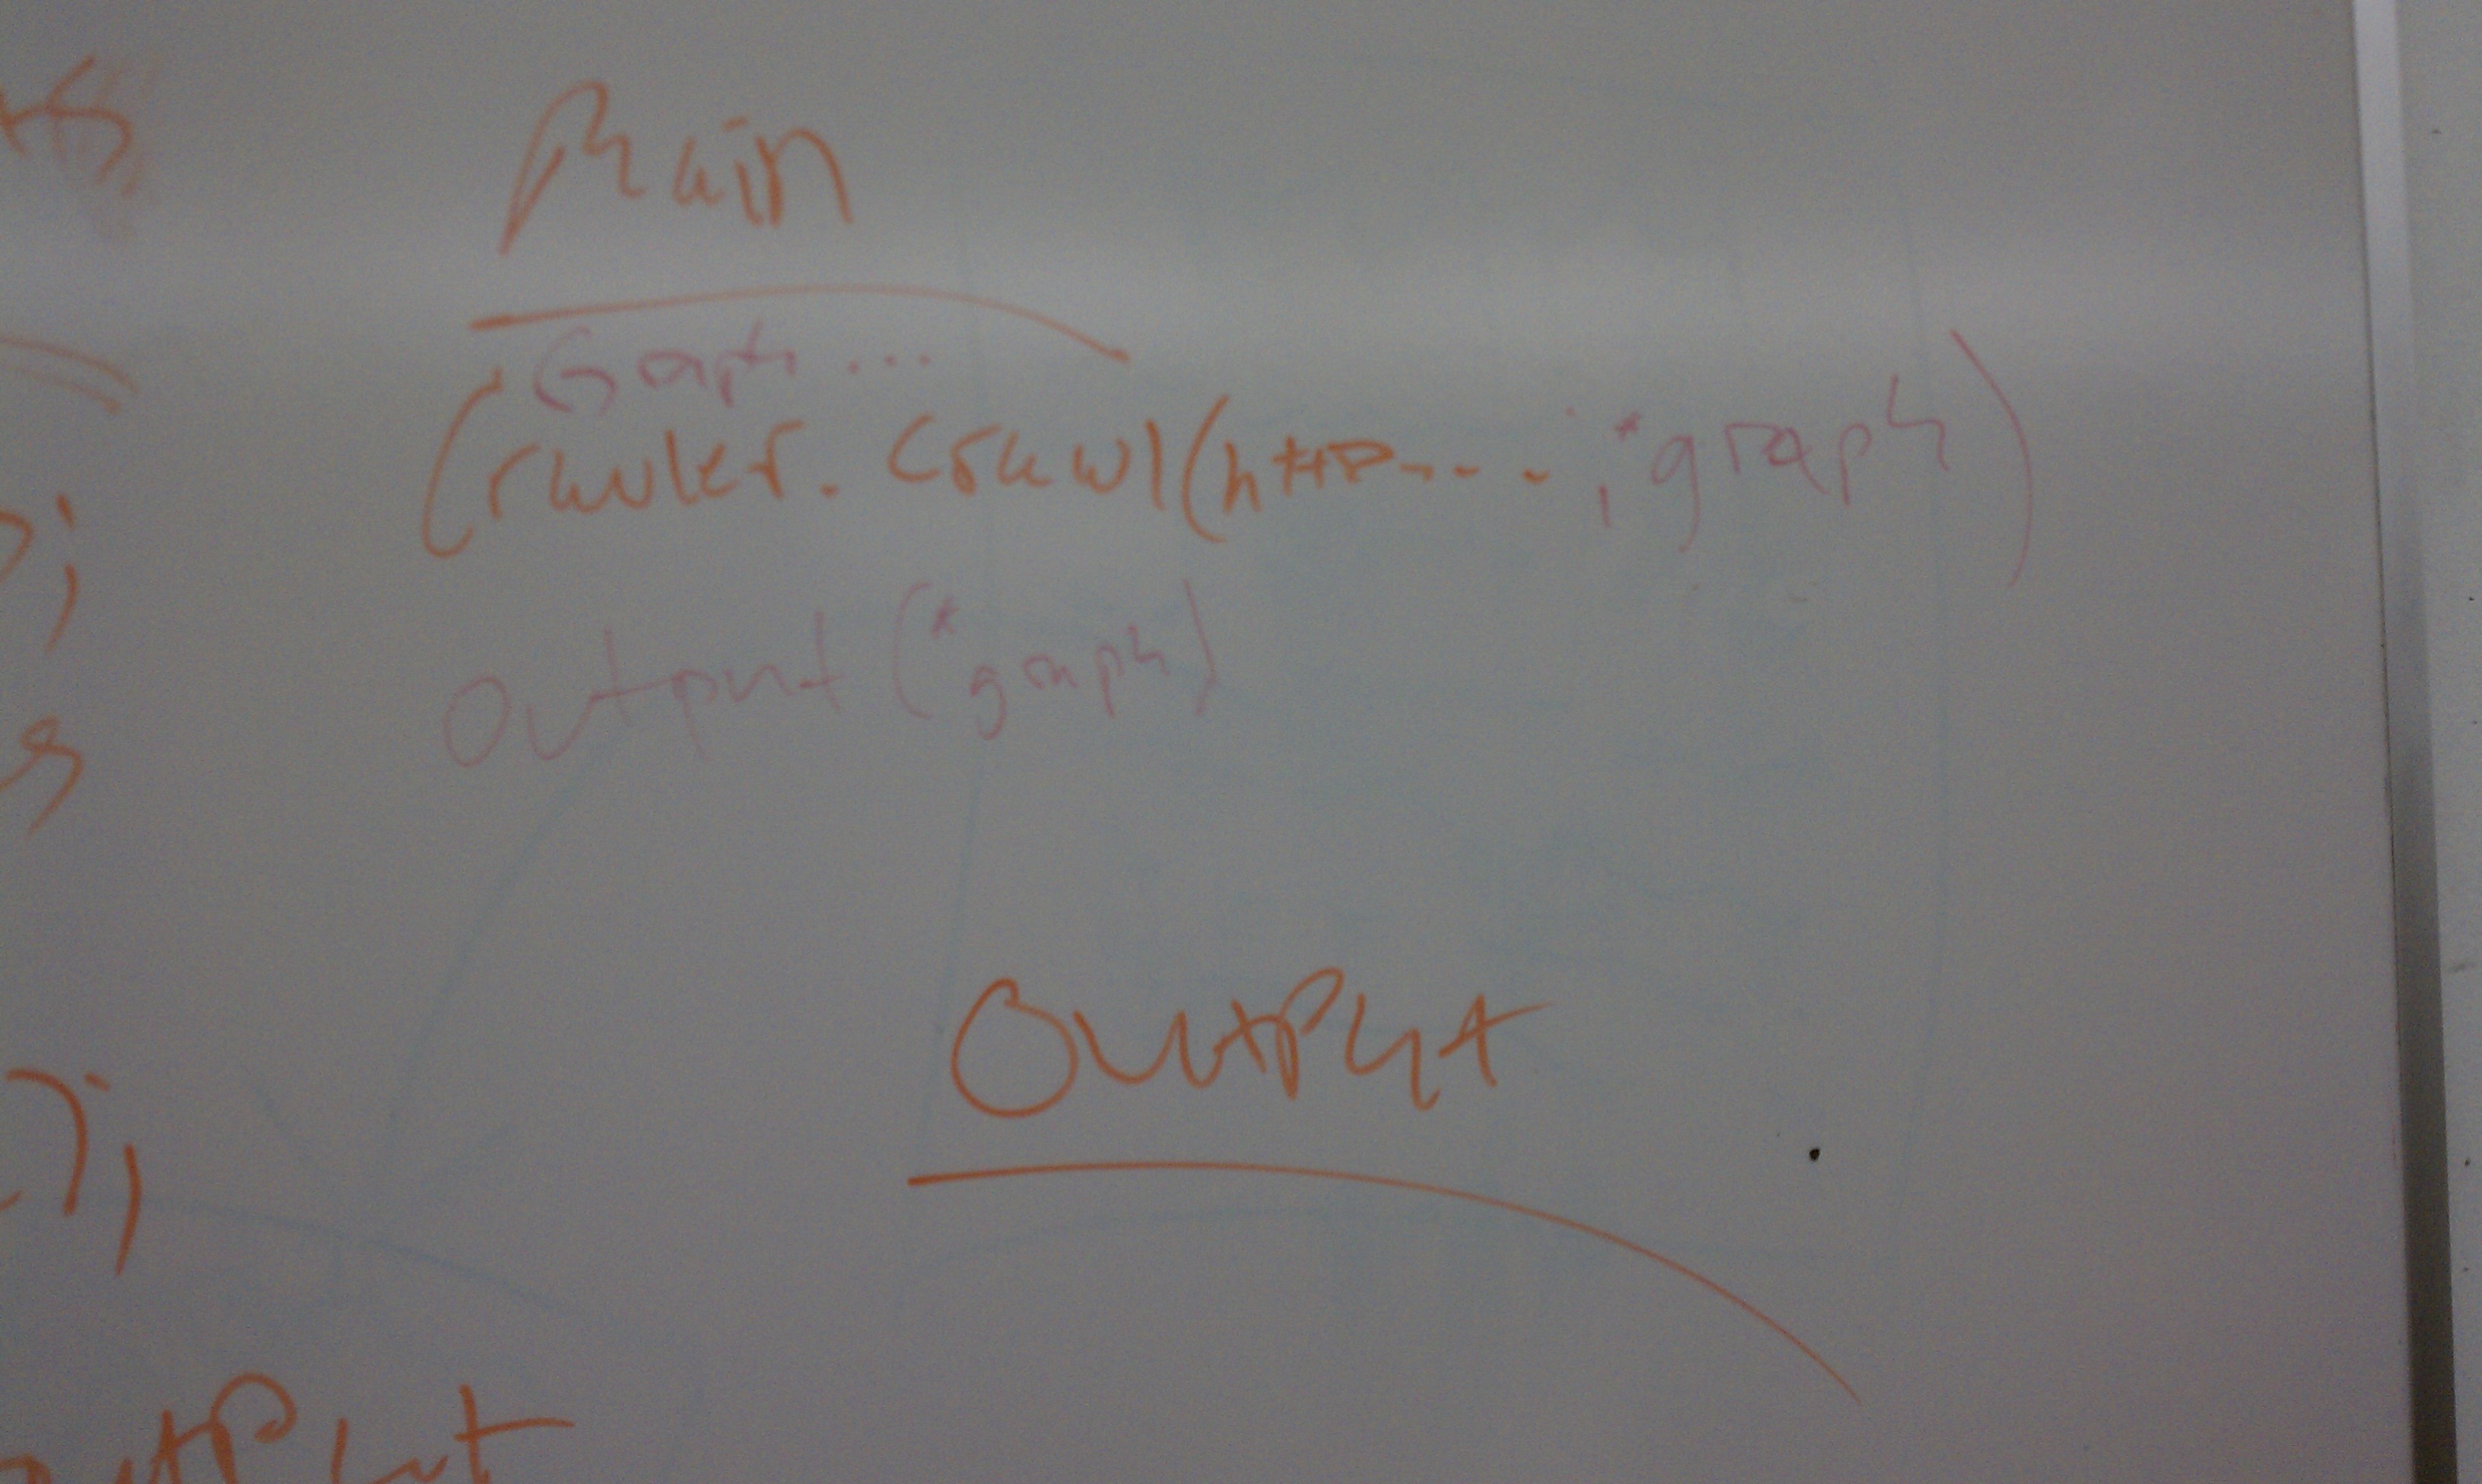 Main
Graph ...
Crawler.Crawl(http.... , *graph)
Output (*graph)
Output
output